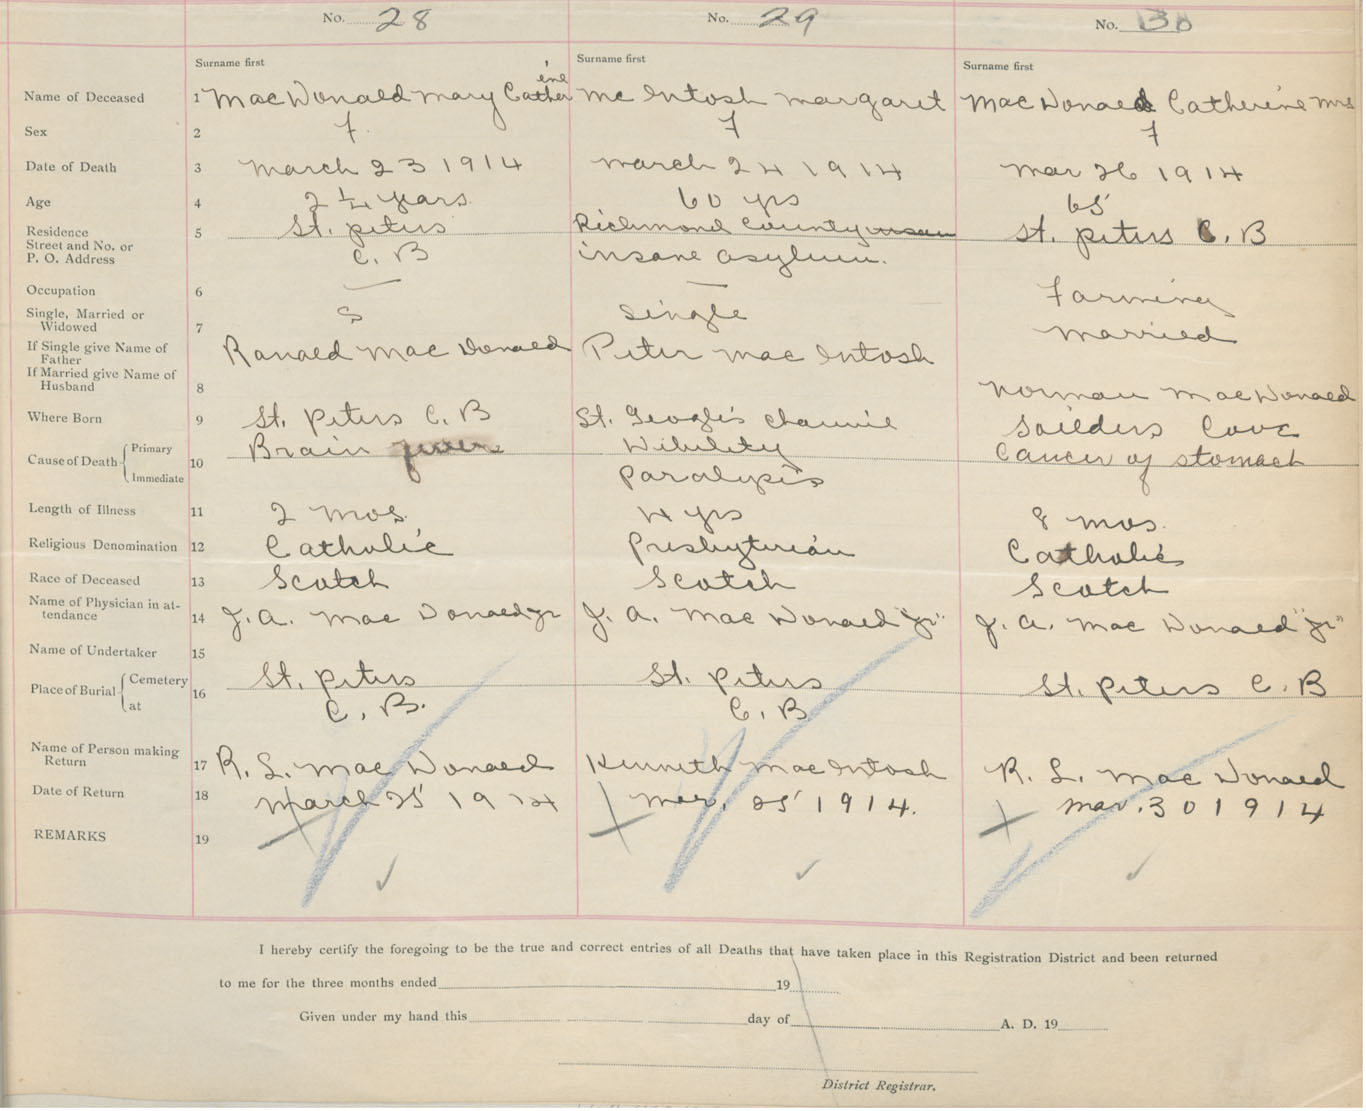 No. 28 No. 29 No. 30
Surname first Surname first Surname first
ine
Name of Deceased 1 MacDonald Mary Cather Mc Intosh Margaret MacDonald Catherine Mrs
Sex 2 F. F F
Date of Death 3 March 23 1914 March 24 1914 Mar 26 1914
Age 4 2 1/4 years 60 yrs 65
Residence 5 St. Peters Richmond County St. Peters C. B
Street and No. or
P. O. Address C. B insane asylum.
Occupation 6 — — Farming
Single, Married or S Single
Widowed 7 Married
If Single give Name of Ranald Mac Donald Peter Mac Intosh
Father
If Married give Name of
Husband 8 Norman MacDonald
Where Born 9 St. Peters C. B St. Geogle's Channel Soilders Cove
Cause of Death Primary Brain fever Dibility Cancer of stomach
10
Immediate Paralysis
Length of Illness 11 2 mos. 4 yrs 8 mos.
Religious Denomination 12 Catholic Presbyterian Catholic
Race of Deceased 13 Scotch Scotch Scotch
Name of Physician in at-
tendance 14 J. A. Mac Donald Jr J. A. Mac Donald "Jr." J. A. Mac Donald "Jr"
Name of Undertaker 15
Place of Burial Cemetery 16 St. Peters St. Peters St. Peters C. B
at C. B. C. B
Name of Person making
Return 17 R. L. Mac Donald Kenneth MacIntosh R. L. Mac Donald
Date of Return 18 March 25 1914 Mar. 25 1914. Mar. 30 1914
REMARKS 19
I hereby certify the foregoing to be the true and correct entries of all Deaths that have taken place in this Registration District and been returned
to me for the three months ended 19
Given under my hand this day of A. D. 19
District Registrar.